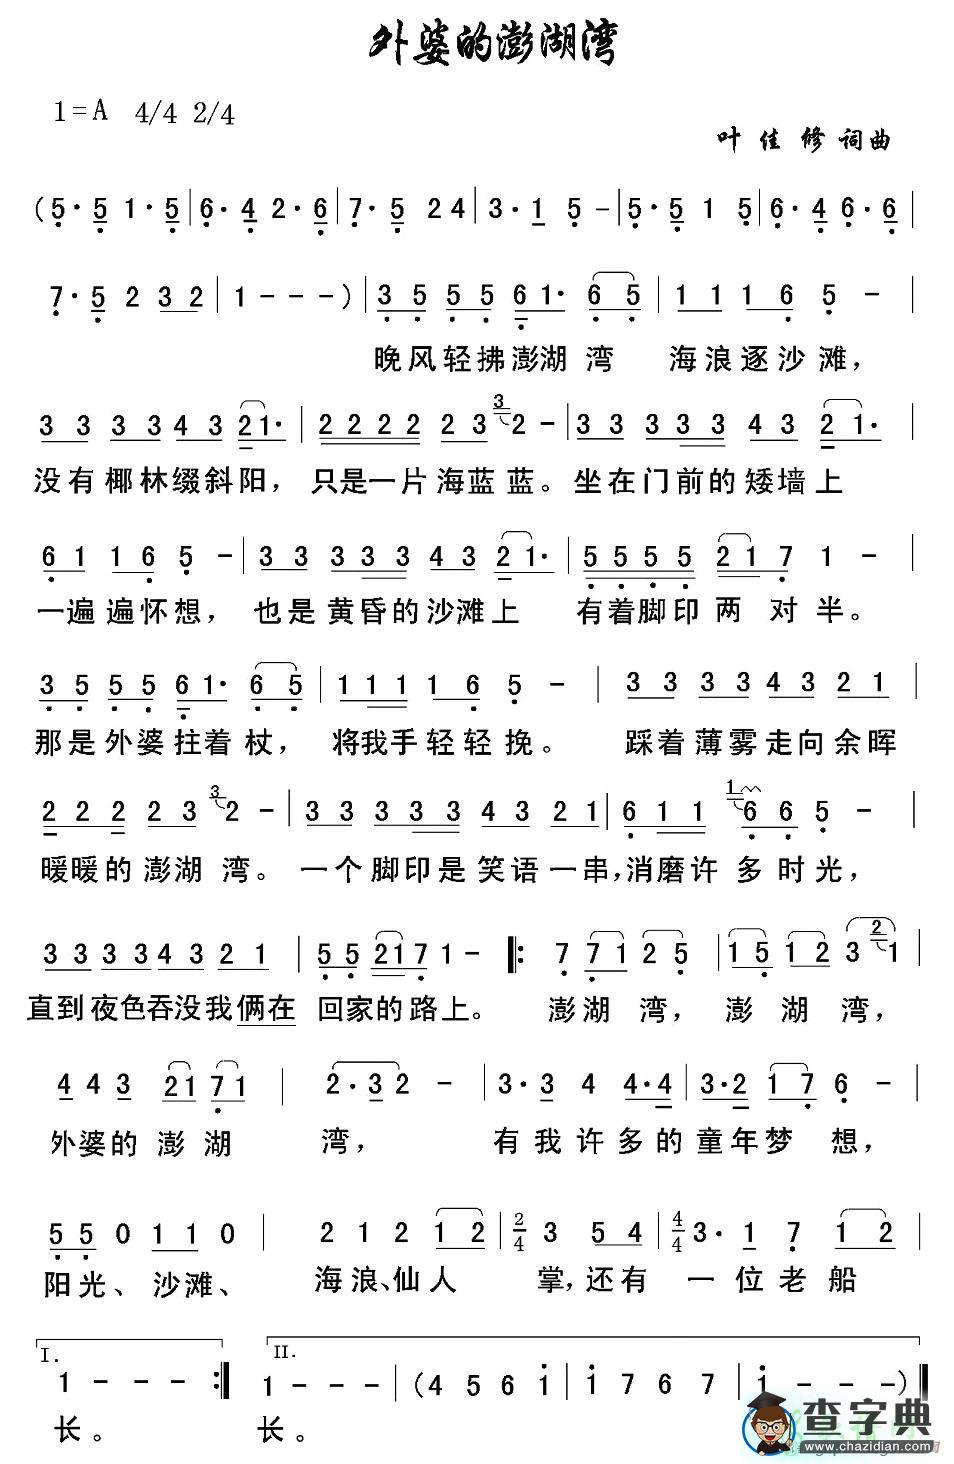 外婆的澎湖湾
1=A 4/4 2/4
叶佳修词曲
(5·5 1·5|6·4 2·6|7·5 24|3·1 5-|5·5 1 5|6·4 6·6|
7·5 2 32|1---)|35 55 61· 65|11 16 5-|
晚风轻拂澎湖湾 海浪逐沙滩,
33 33 43 21·|2222 23 3 2-|33 333 43 21·|
没有椰林缀斜阳, 只是一片海蓝蓝。坐在门前的矮墙上
61 16 5-|33 333 43 21·|5555 217 1-|
一遍遍怀想, 也是黄昏的沙滩上 有着脚印两对半。
35 55 61· 65|111 16 5-|33 33 43 21|
那是外婆拄着杖, 将我手轻轻挽。 踩着薄雾走向余晖
22 2 23 3 2-|33 333 43 21|611 1 66 5-|
暖暖的澎湖湾。一个脚印是笑语一串,消磨许多时光,
33 33 43 21|55 217 1-‖:7 71 2 5|15 12 3 2 1|
直到夜色吞没我俩在 回家的路上。 澎湖湾, 澎湖湾,
4 4 3 21 71|2·3 2-|3·3 4 4·4|3·2 17 6-|
外婆的澎湖 湾, 有我许多的童年梦想,
55 0 11 0|2 1 2 12|2/4 3 54|4/4 3·1 7 12|
阳光、沙滩、 海浪、仙人 掌,还有 一位老船
I. II.
1---:‖1---|(4 5 6 1|1 7 6 7|1---)‖
长。 长。
查字典
www.chazidian.com